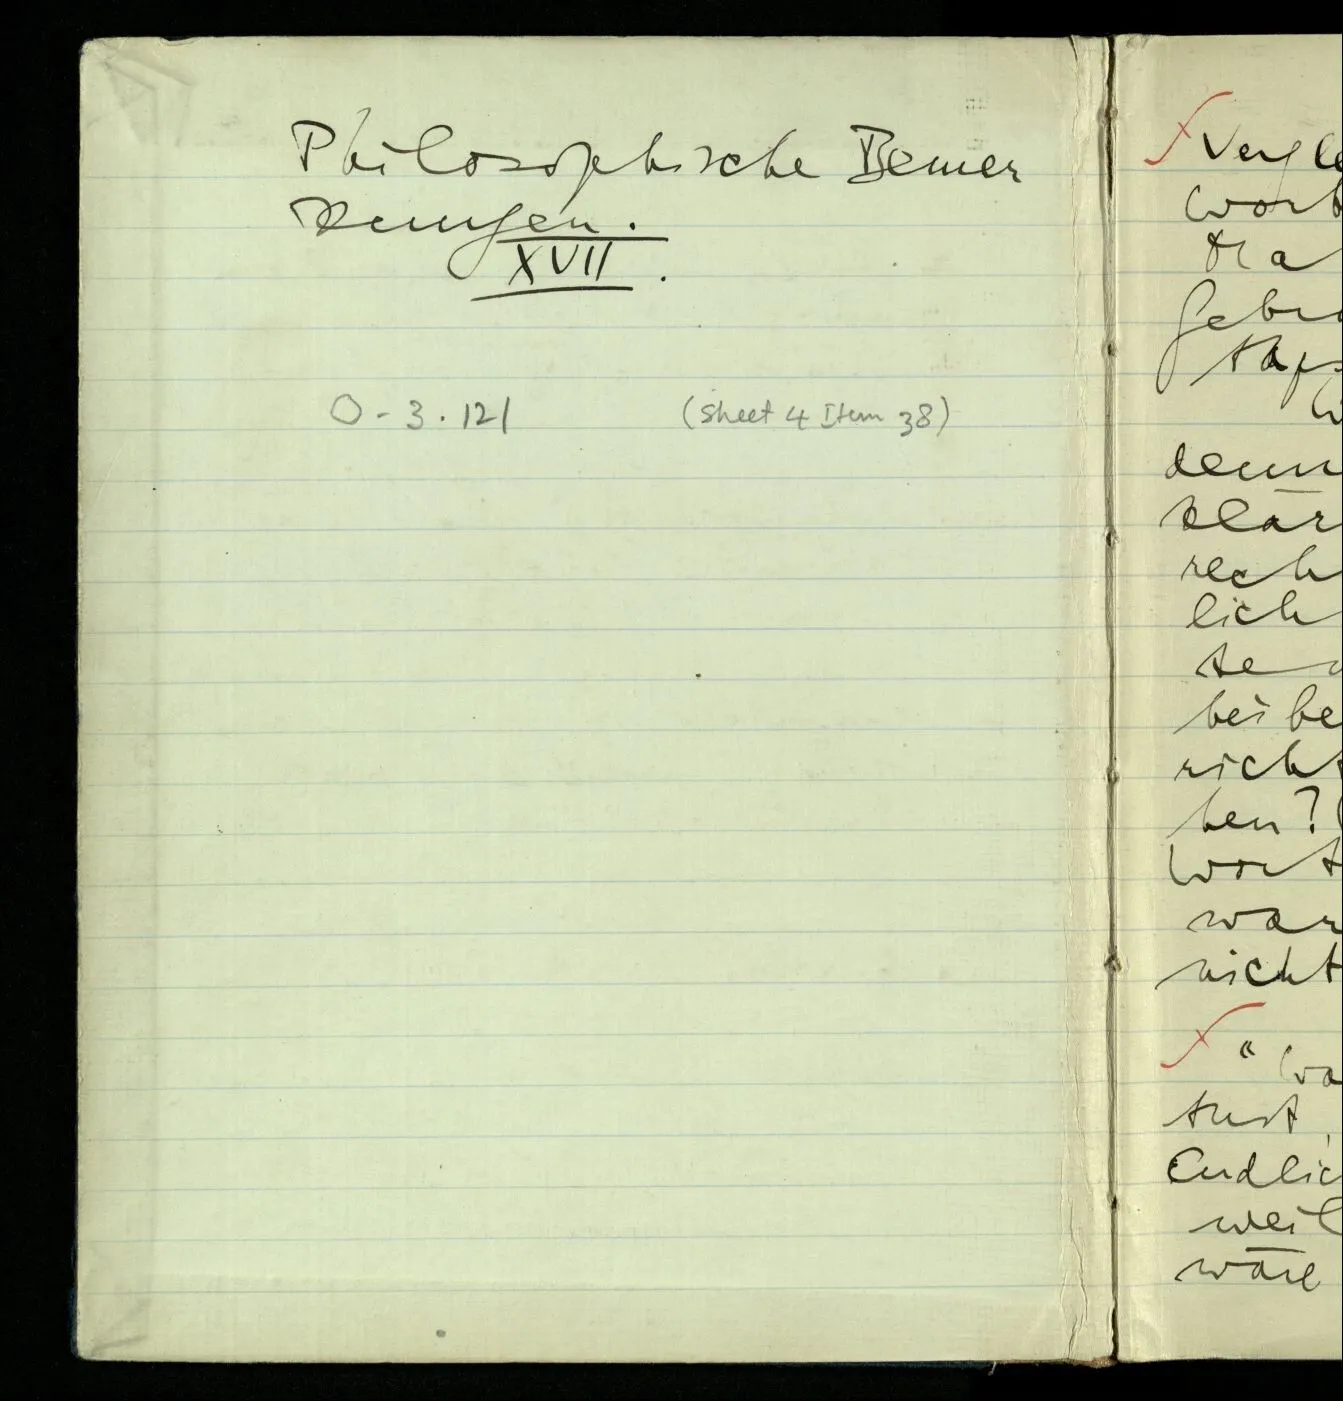 Philosophische Bemer
kungen.
XVII.
O - 3. 121 (Sheet 4 Item 38)
Vergle
Wort
tra
gebra
Taf
W
denn
klär
rech
lich
te
beibe
richt
ben? (
Wort
war
nicht
"Wa
tust,
Endlic
weil
wäre